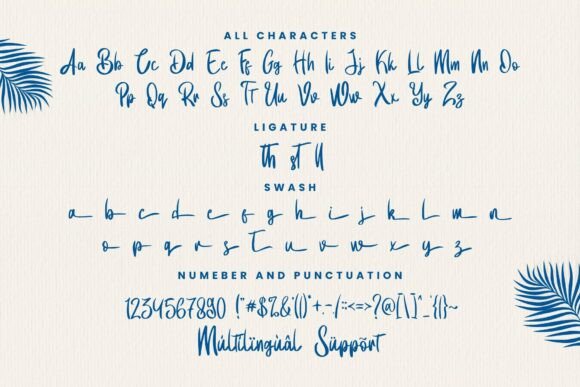 ALL CHARACTERS
Aa Bb Cc Dd Ee Ff Gg Hh Ii Jj Kk Ll Mm Nn Oo
Pp Qq Rr Ss Tt Uu Vv Ww Xx Yy Zz
LIGATURE
th st ll
SWASH
a b c d e f g h i j k l m n
o p q r s t u v w x y z
NUMEBER AND PUNCTUATION
1234567890 !"#$%&'()*+,-./:;<=>?@[\]^_`{|}~
Múltílïngùâl Süppõrt